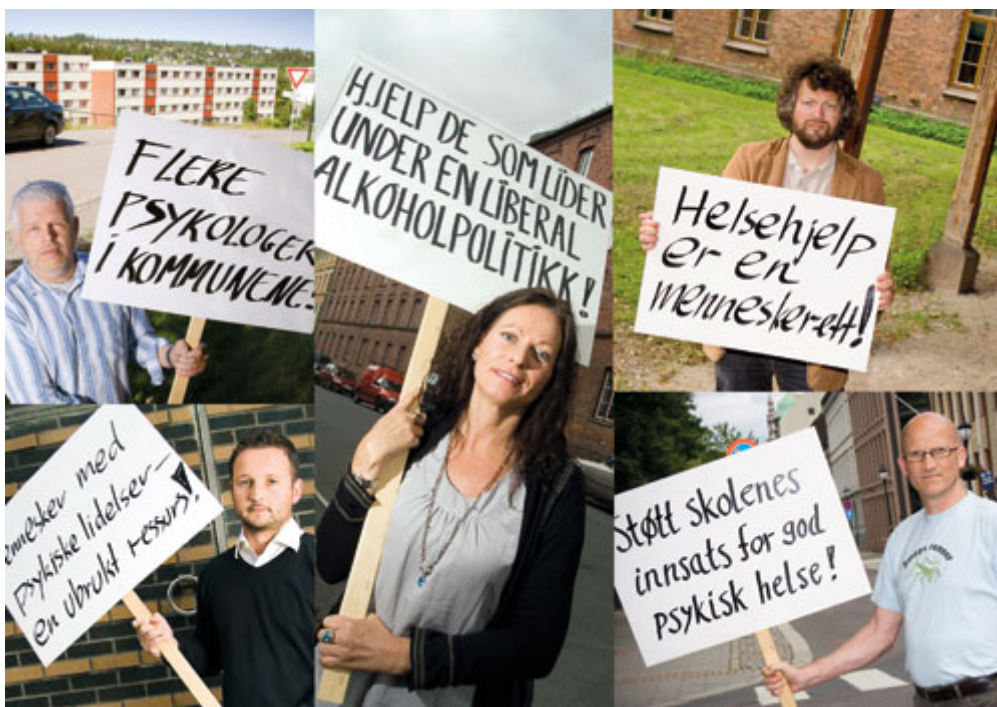 FLERE
PSYKOLOGER
I KOMMUNENE!
HJELP DE SOM LIDER
UNDER EN LIBERAL
ALKOHOLPOLITIKK!
Helsehjelp
er en
menneskerett!
ennesker med
psykiske lidelser –
en ubrukt ressurs!
Støtt skolenes
innsats for god
psykisk helse!